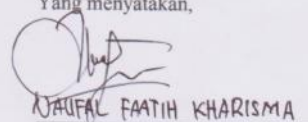 Yang menyatakan,
NAUFAL FAATIH KHARISMA